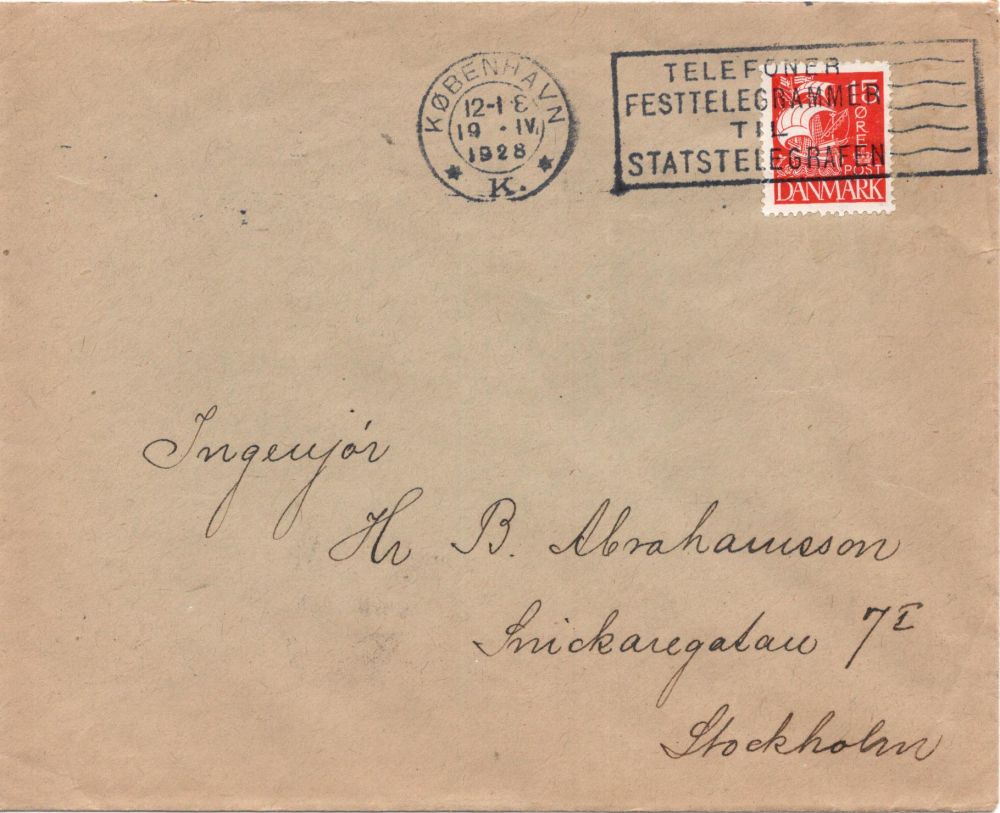 KØBENHAVN
12-1 E.
19 . IV.
1928
* K. *
TELEFONER
FESTTELEGRAMMER
TIL
STATSTELEGRAFEN
15
ØRE
POST
DANMARK
Ingenjör
Hr B. Abrahamsson
Snickaregatan 7 I
Stockholm